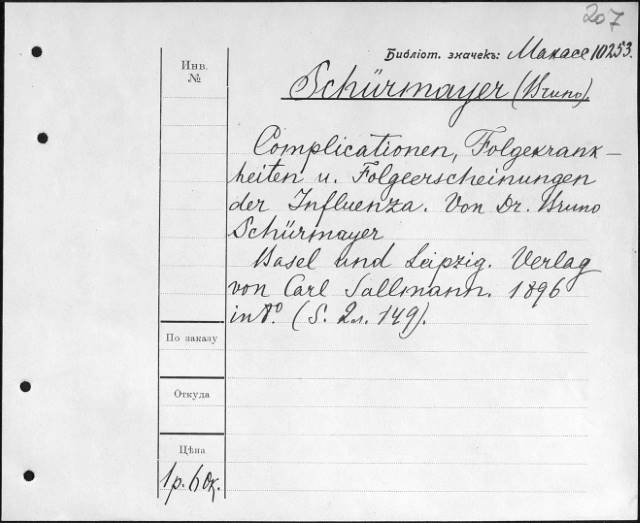 207
Библіот. значекъ: Махасе 10253.
Инв.
№
Schürmayer (Bruno)
Complicationen, Folgekrank-
heiten u. Folgeerscheinungen
der Influenza. Von Dr. Bruno
Schürmayer
Basel und Leipzig. Verlag
von Carl Sallmann. 1896
in 8.° (S. 2л. 149).
По заказу
Откуда
Цѣна
1 р.